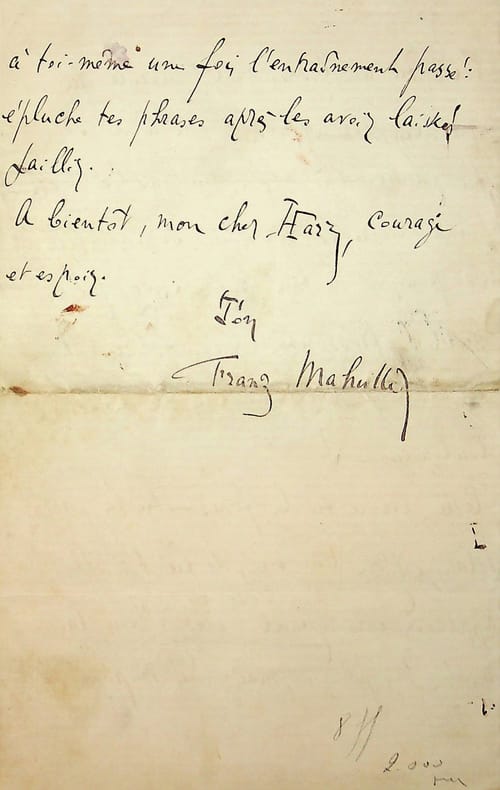 à toi-même une fois l'entraînement passé:
épluche tes phrases après les avoir laissé
jaillir.
A bientôt, mon cher Harry, courage
et espoir.
Ton
Franz Mahutte
8 ff
2.000